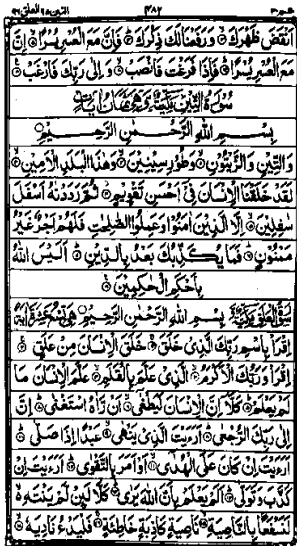 انقض ظهرك ورفعنا لك ذكرك فان مع العسر يسرا ان
مع العسر يسرا فاذا فرغت فانصب والى ربك فارغب
سورة التين مكية وهي ثمان ايات
بسم الله الرحمن الرحيم
والتين والزيتون وطور سينين وهذا البلد الامين
لقد خلقنا الانسان في احسن تقويم ثم رددنه اسفل
سفلين الا الذين امنوا وعملوا الصلحت فلهم اجر غير
ممنون فما يكذبك بعد بالدين اليس الله
باحكم الحكمين
سورة العلق مكية بسم الله الرحمن الرحيم وهي تسع عشرة اية
اقرا باسم ربك الذي خلق خلق الانسان من علق
اقرا وربك الاكرم الذي علم بالقلم علم الانسان ما
لم يعلم كلا ان الانسان ليطغى ان راه استغنى ان
الى ربك الرجعى ارءيت الذي ينهى عبدا اذا صلى
ارءيت ان كان على الهدى او امر بالتقوى ارءيت ان
كذب وتولى الم يعلم بان الله يرى كلا لئن لم ينته
لنسفعا بالناصية ناصية كاذبة خاطئة فليدع ناديه